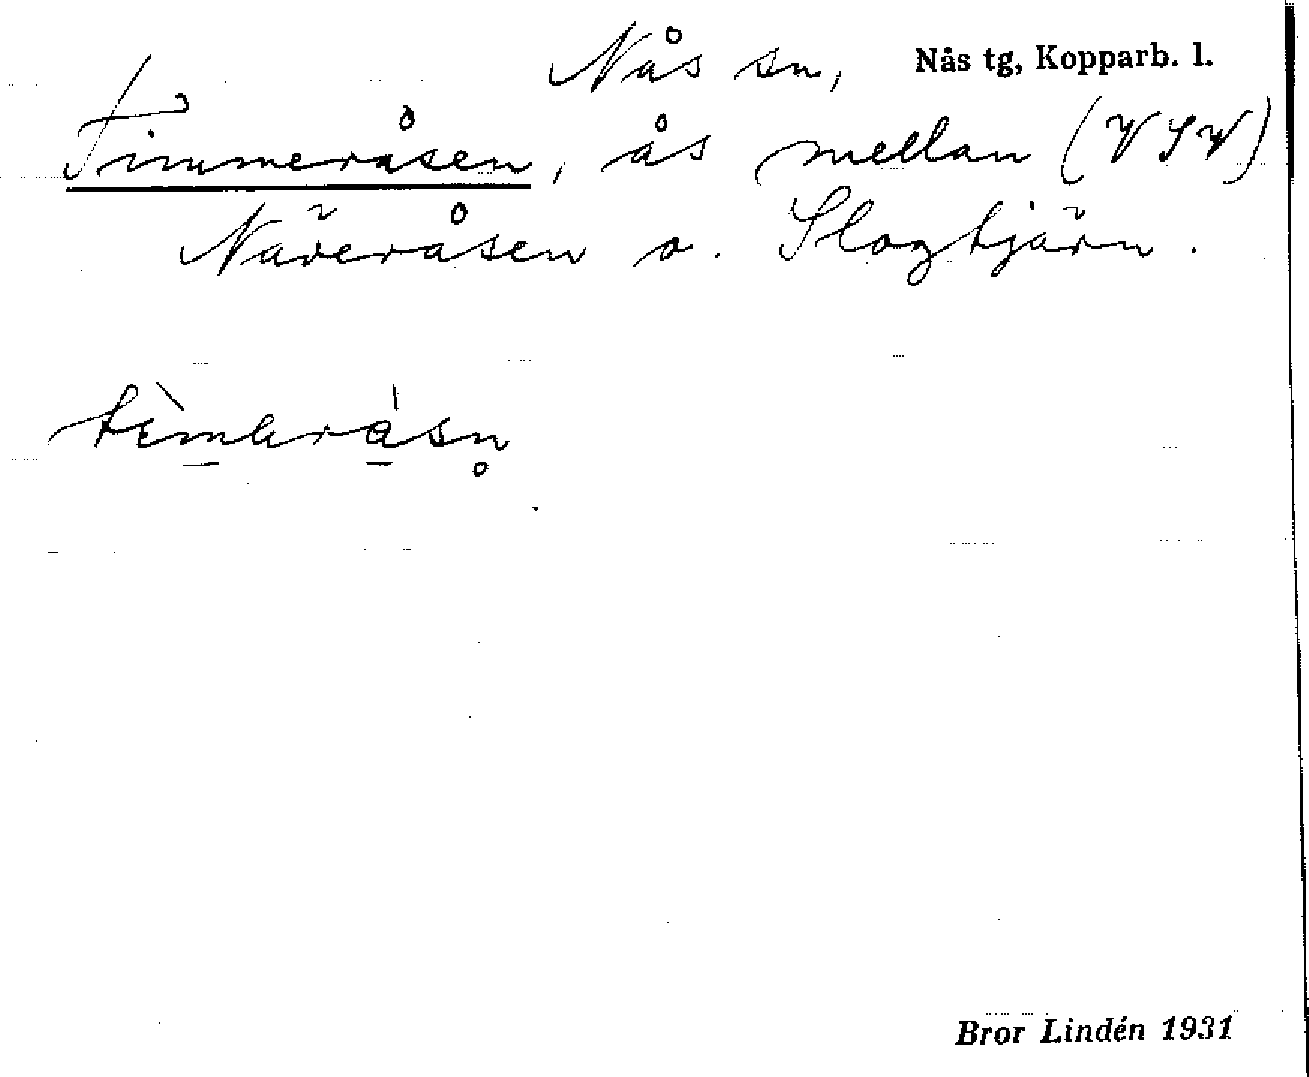 Nås sn, Nås tg, Kopparb. l.
Timmeråsen, ås mellan (VSV)
Näveråsen o. Slogtjärn.
Bror Lindén 1931